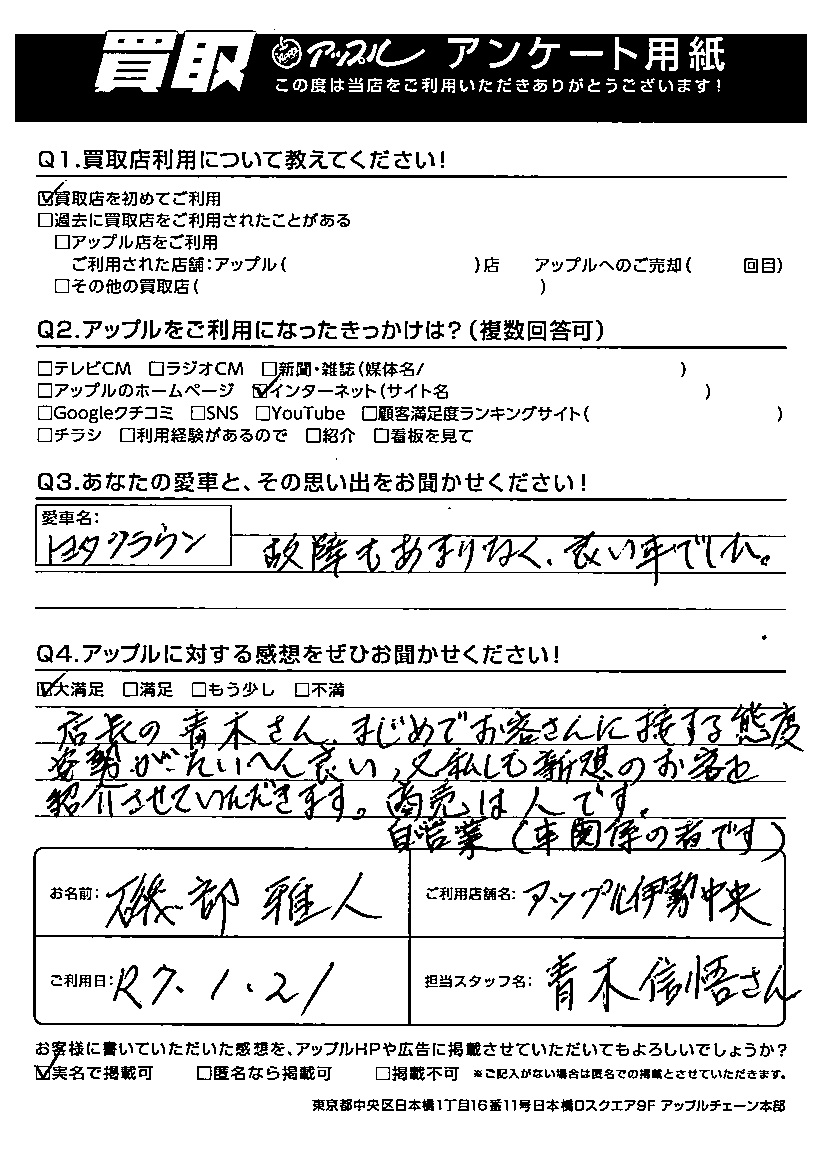 買取 アップル アンケート用紙
この度は当店をご利用いただきありがとうございます!
Q1.買取店利用について教えてください!
☑買取店を初めてご利用
□過去に買取店をご利用されたことがある
□アップル店をご利用
ご利用された店舗:アップル( )店 アップルへのご売却( 回目)
□その他の買取店( )
Q2.アップルをご利用になったきっかけは?(複数回答可)
□テレビCM □ラジオCM □新聞・雑誌(媒体名/ )
□アップルのホームページ ☑インターネット(サイト名 )
□Googleクチコミ □SNS □YouTube □顧客満足度ランキングサイト( )
□チラシ □利用経験があるので □紹介 □看板を見て
Q3.あなたの愛車と、その思い出をお聞かせください!
愛車名:
トヨタクラウン 故障もあまりなく、良い車でした。
Q4.アップルに対する感想をぜひお聞かせください!
☑大満足 □満足 □もう少し □不満
店長の青木さん、まじめでお客さんに接する態度
姿勢がたいへん良い、又私しも新規のお客を
紹介させていただきます。商売は人です。
自営業(車関係の者です)
お名前: 磯部 雅人 ご利用店舗名: アップル伊勢中央
ご利用日: R7.1.21 担当スタッフ名: 青木信悟さん
お客様に書いていただいた感想を、アップルHPや広告に掲載させていただいてもよろしいでしょうか?
☑実名で掲載可 □匿名なら掲載可 □掲載不可 ※ご記入がない場合は匿名での掲載とさせていただきます。
東京都中央区日本橋1丁目16番11号日本橋Dスクエア9F アップルチェーン本部